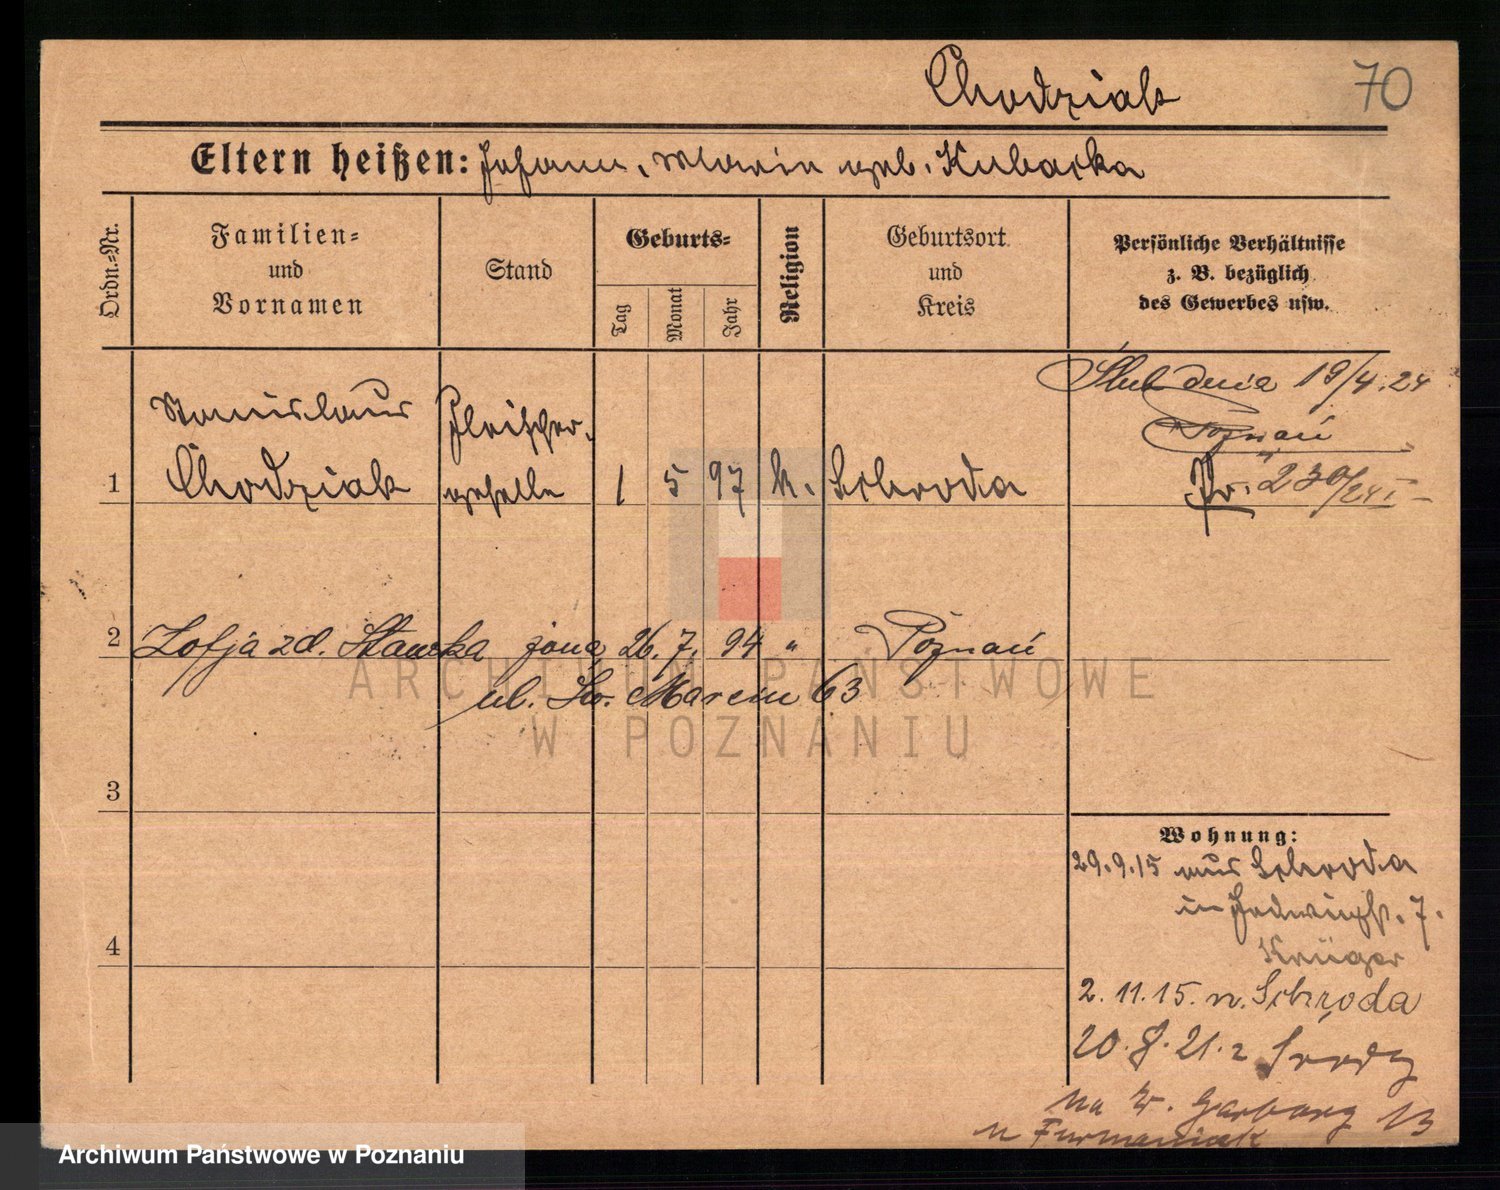 Chodziak 70
Eltern heißen: Johann, Maria geb. Kubacka
Ordn.-Nr.
Familien-
und
Vornamen
Stand
Geburts-
Tag
Monat
Jahr
Religion
Geburtsort
und
Kreis
Persönliche Verhältnisse
z. B. bezüglich
des Gewerbes usw.
Ślub dnia 19/4.24
Poznań
Pr. 230/24 I
Stanislaus Fleischer-
1 Chodziak geselle 1 5 97 k. Schroda
2 Zofja zd. Stawska żona 26. 7. 94 " Poznań
ul. Św. Marcin 63
3
4
Wohnung:
29.9.15 aus Schroda
in Hedwigst. 7.
Krüger
2.11.15. n. Schroda
20.8.21. z Środy
na W. Garbary 13
u Furmaniak
ARCHIWUM PAŃSTWOWE
W POZNANIU
Archiwum Państwowe w Poznaniu